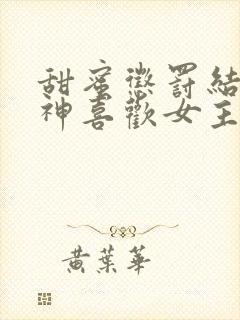 甜蜜懲罰結
神喜歡女主
黃葉華